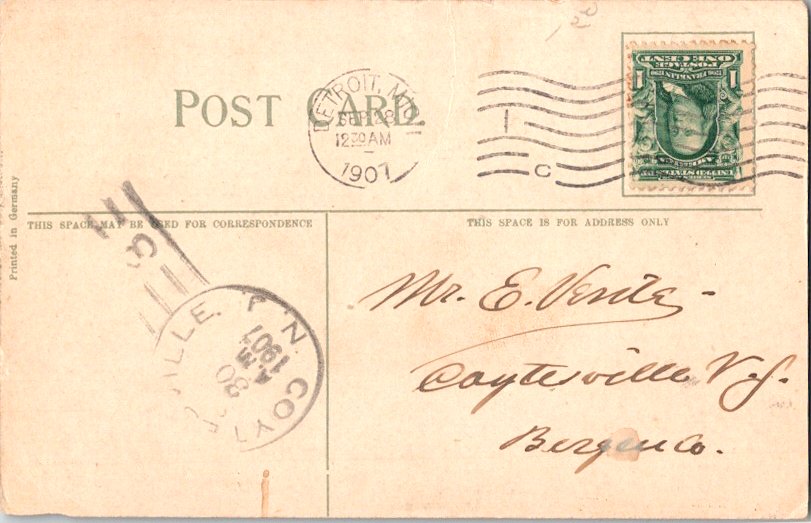 POST CARD.
DETROIT, MICH.
SEP 28
12 30 AM
1907
C
ONE CENT
POSTAGE
FRANKLIN
1 1
THIS SPACE MAY BE USED FOR CORRESPONDENCE
THIS SPACE IS FOR ADDRESS ONLY
Printed in Germany
COYTESVILLE N.
30
A.M.
1907
Mr. E. Vente -
Coytesville N.J.
Bergen Co.